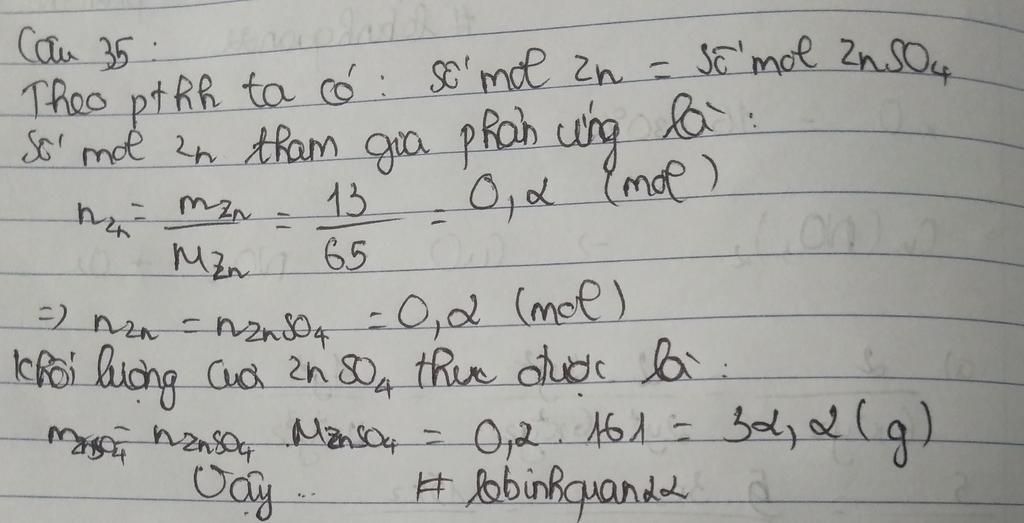 Câu 35 :
Theo pthh ta có : số mol Zn = số mol ZnSO₄
Số mol Zn tham gia phản ứng là :
n_Zn = m_Zn / M_Zn = 13 / 65 = 0,2 (mol)
=> n_Zn = n_ZnSO₄ = 0,2 (mol)
Khối lượng của ZnSO₄ thu được là :
m_ZnSO₄ = n_ZnSO₄ . M_ZnSO₄ = 0,2 . 161 = 32,2 (g)
Vậy .. # lobinhquan22